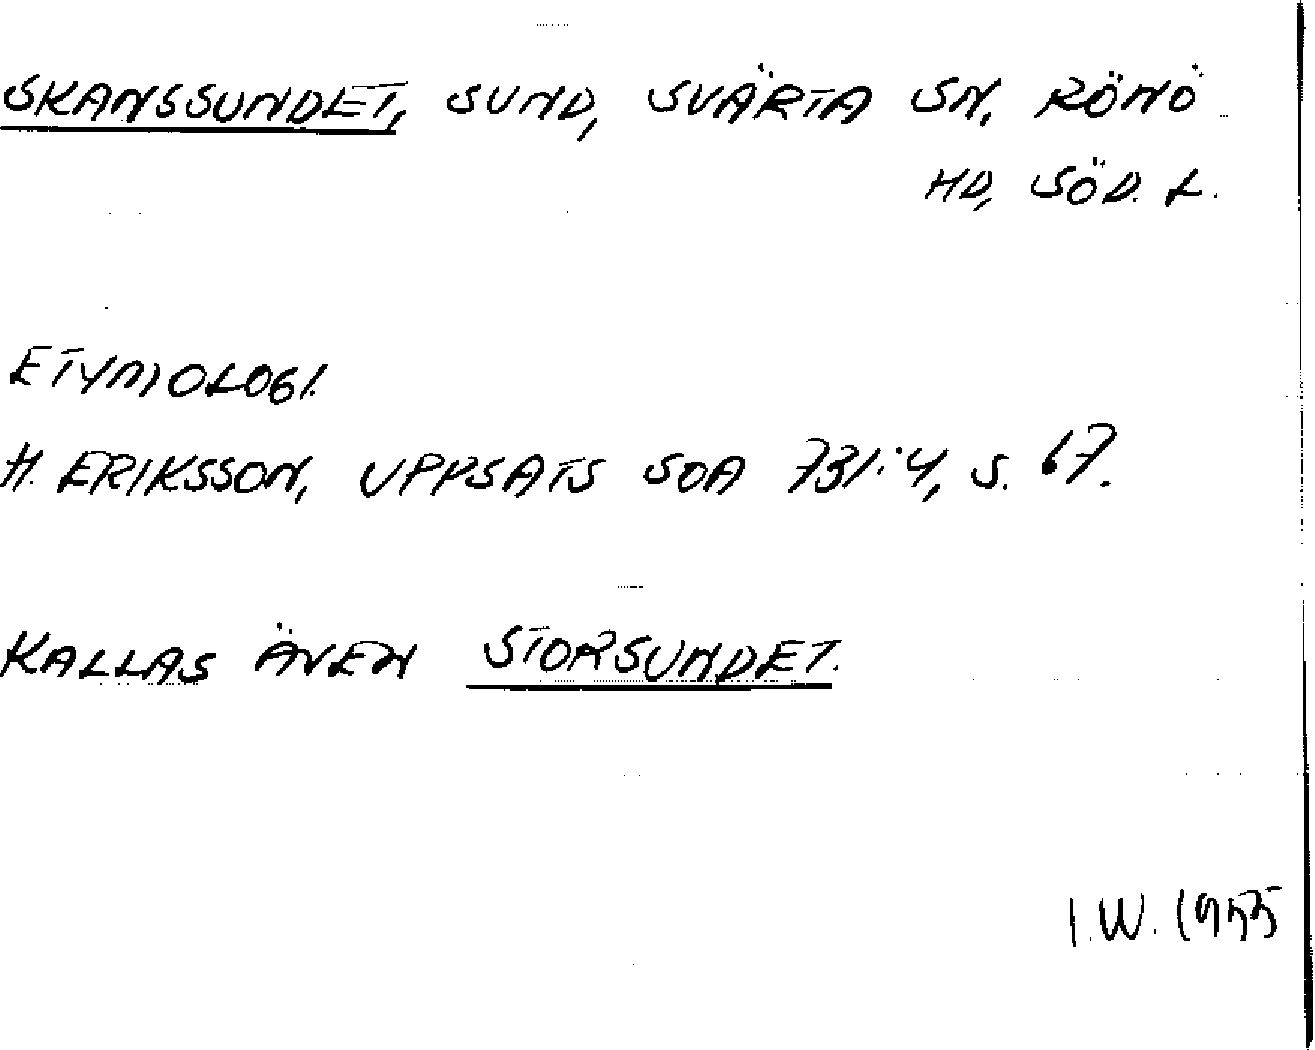 SKANSSUNDET, SUND, SVÄRTA SN. RÖNÖ
HD, SÖD. L.
ETYMOLOGI.
H. ERIKSSON, UPPSATS SOA 731:4, S. 67.
KALLAS ÄVEN STORSUNDET.
I.W. 1955